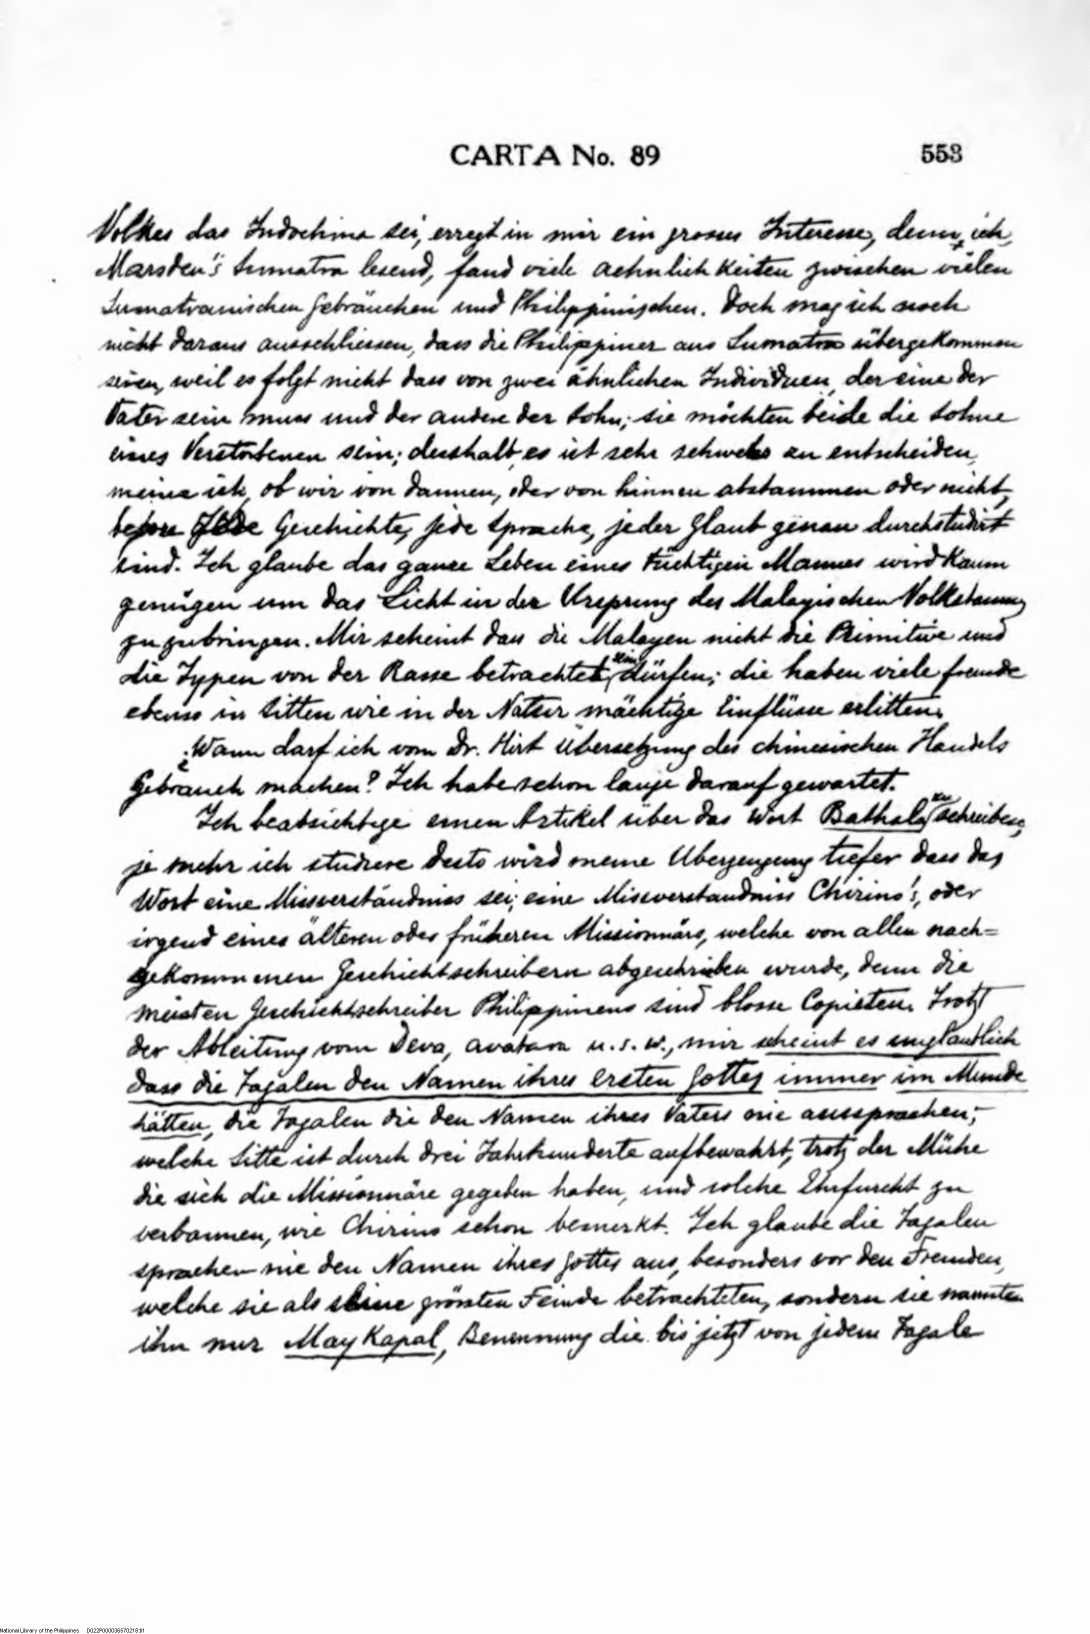 CARTA No. 89 553
Volkes das Indochina sei, erregt in mir ein grosses Interesse, denn, ich,
Marsden's Sumatra lesend, fand viele aehnlichkeiten zwischen vielen
Sumatranischen Gebräuchen und Philippinischen. Doch mag ich noch
nicht daraus ausschliessen, dass die Philippiner aus Sumatra übergekommen
seien, weil es folgt nicht dass von zwei ähnlichen Individuen, der eine der
Vater sein muss und der andere der Sohn; sie möchten beide die Sohne
eines Verstorbenen sein; desshalb, es ist sehr schwer zu entscheiden,
meine ich, ob wir von dannen, oder von hinnen abstammen oder nicht,
Geschichte, jede Sprache, jeder Glaut genau durchstudirt
sind. Ich glaube das ganze Leben eines tüchtigen Mannes wird kaum
genügen um das Licht in der Ursprung des Malayischen Volkstamms
zu zubringen. Mir scheint dass die Malayen nicht die Primitive und
die Typen von der Rasse betrachtet sein dürfen; die haben viele fremde
ebenso in Sitten wie in der Natur mächtige Einflüsse erlitten.
Wann darf ich vom Dr. Hirt Übersetzung des chinesischen Handels
Gebrauch machen? Ich habe schon lange darauf gewartet.
Ich beabsichtige einen Artikel über das Wort Bathala zu schreiben,
je mehr ich studiere desto wird meine Uberzeugung tiefer dass das
Wort eine Missverständniss sei; eine Missverstandniss Chirino's, oder
irgend eines älteren oder früheren Missionnärs, welche von allen nach=
gekommenen Geschichtschreibern abgeschrieben wurde, denn die
meisten Geschichtsschreiber Philippinens sind blosse Copisten. Trotz
der Ableitung vom Deva, avatara u. s. w., mir scheint es unglaublich
dass die Tagalen den Namen ihres ersten Gottes immer im Munde
hätten, die Tagalen die den Namen ihres Vaters nie aussprachen;
welche Sitte ist durch drei Jahrhunderte aufbewahrt, trotz der Mühe
die sich die Missionnäre gegeben haben, und solche Ehrfurcht zu
verbannen, wie Chirino schon bemerkt. Ich glaube die Tagalen
sprachen nie den Namen ihres Gottes aus, besonders vor den Fremden,
welche sie als grössten Feinde betrachteten, sondern sie nannten
ihn nur May Kapal, Benennung die bis jetzt von jedem Tagale
National Library of the Philippines